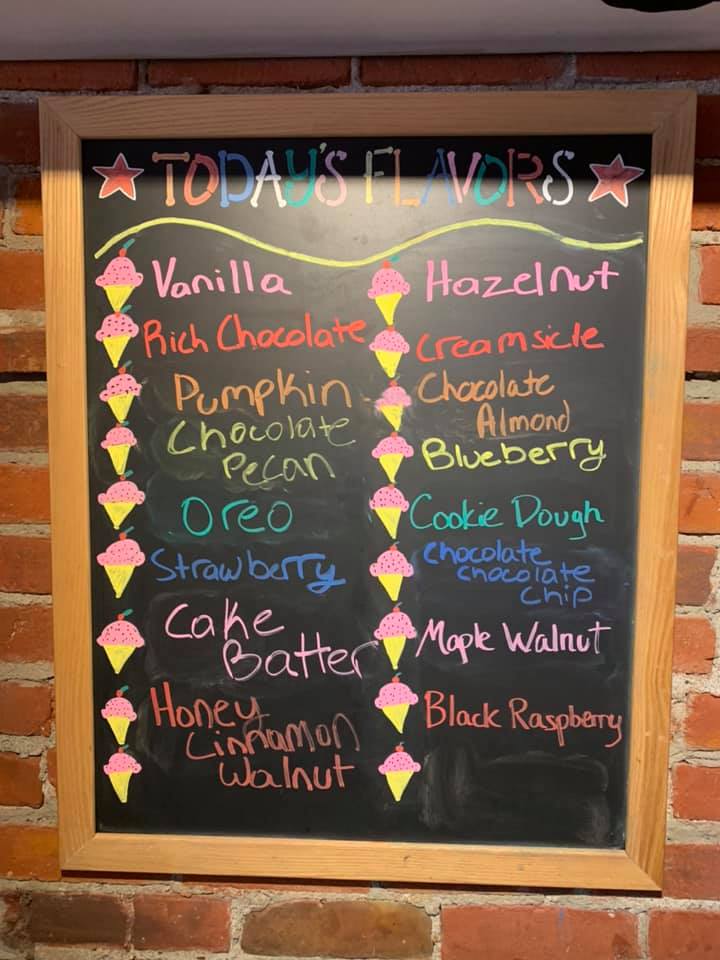 TODAY'S FLAVORS
Vanilla
Rich Chocolate
Pumpkin
Chocolate
Pecan
Oreo
Strawberry
Cake
Batter
Honey
Cinnamon
Walnut
Hazelnut
Creamsicle
Chocolate
Almond
Blueberry
Cookie Dough
Chocolate
chocolate
chip
Maple Walnut
Black Raspberry